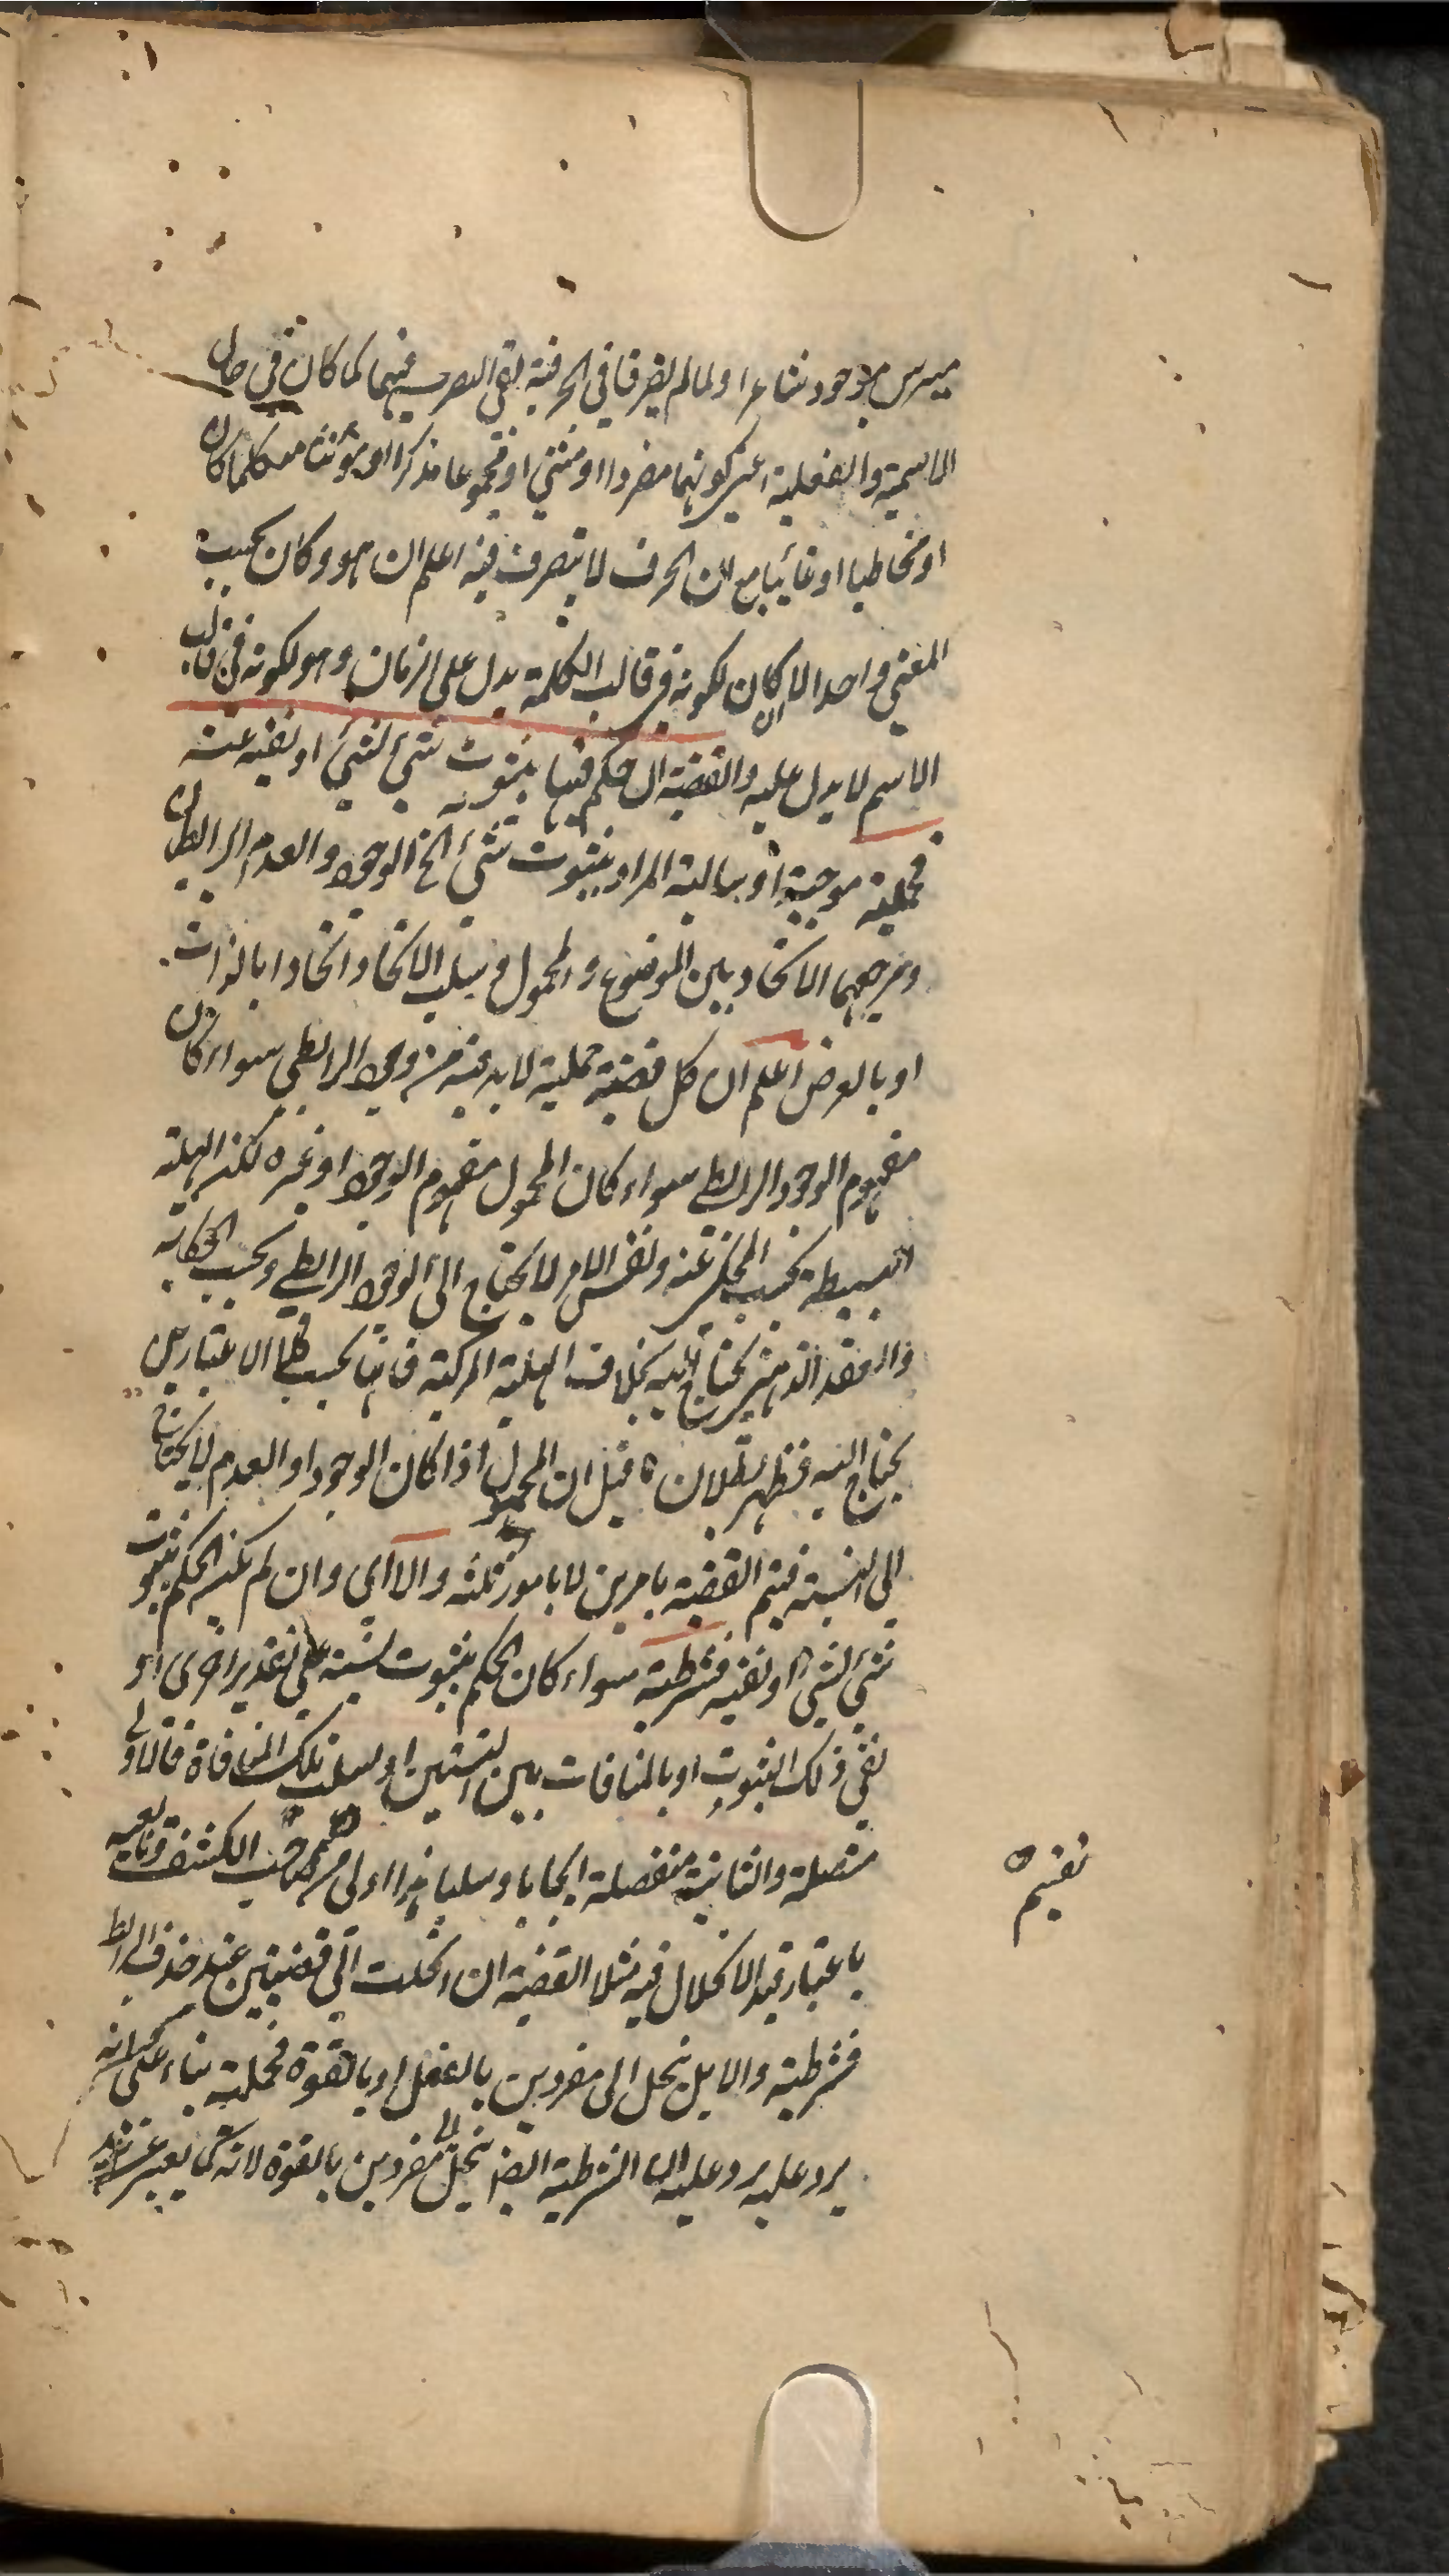 موجود شاعرا ولما لم يضرفا في الحرفية بقي التصرف فيهما كما كان في حال
الاسمية والفعلية اعني كونهما مفردا او مثنى او مجموعا مذكرا او مؤنثا متكلما كان
او مخاطبا او غائبا مع ان الحرف لا يتصرف فيه اعلم ان هو وكان بحسب
المعنى واحد الا ان كان لكونه في قالب الكلمة يدل على الزمان وهو لكونه في قالب
الاسم لا يدل عليه والقضية ان حكم فيها بثبوت شئ لشئ او نفيه عنه
فحملية موجبة او سالبة المراد بثبوت شئ الخ الوجود والعدم الرابطان
ومرجعهما الاتحاد بين الموضوع والمحمول وسلب الاتحاد اتحادا بالذات
او بالعرض اعلم ان كل قضية حملية لا بد فيه من وجود الرابطي سواء كان
مفهوم الوجود الرابطي سواء كان المحمول مفهوم الوجود او غيره لكن الهلية
البسيطة بحسب المحكي عنه ونفس الامر لا يحتاج الى الوجود الرابطي وبحسب الحكاية
والعقد الذهني يحتاج اليه بخلاف الهلية المركبة فانها بحسب كلا الاعتبارين
يحتاج اليه فظهر بطلان ما قيل ان المحمول اذا كان الوجود او العدم لا يحتاج
الى النسبة فيتم القضية بامرين لا بامور ثلثه والا اي وان لم يكن الحكم بثبوت
شئ لشئ او نفيه فشرطية سواء كان الحكم بثبوت نسبة على تقدير اخرى او
نفي ذلك الثبوت او بالمنافات بين النسبتين او سلب تلك المنافاة فالاولى
متصلة والثانية منفصلة ايجابا وسلبا هذا اولى من تقسيم صاحب الكشف وتابعيه
باعتبار قيد الانحلال فيه مثلا القضية ان انحلت الى قضيتين عند حذف الرابط
فشرطية والا بل ينحل الى مفردين بالفعل او بالقوة فحملية بناء على انه
يرد عليه يرد عليه ان الشرطية ايضا ينحل الى مفردين بالقوة لانه كما يعبر عن زيد
تقسيم